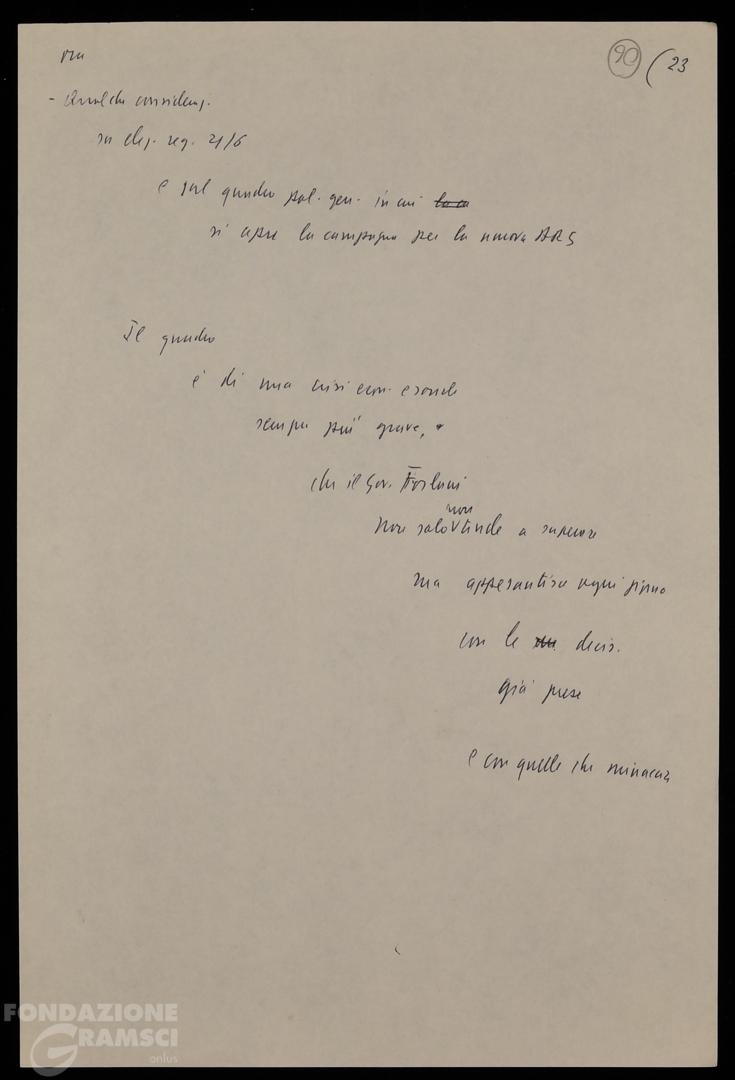 ora
90 (23
- Qualche consideraz.
su elez. reg. 21/6
e sul quadro pol. gen. in cui
si apre la campagna per la nuova ARS
Il quadro
è di una crisi econ. e sociale
sempre più grave,
che il Gov. Forlani
non solo non tende a superare
ma appesantisce ogni giorno
con le decis.
già prese
e con quelle che minaccia
FONDAZIONE
GRAMSCI
onlus